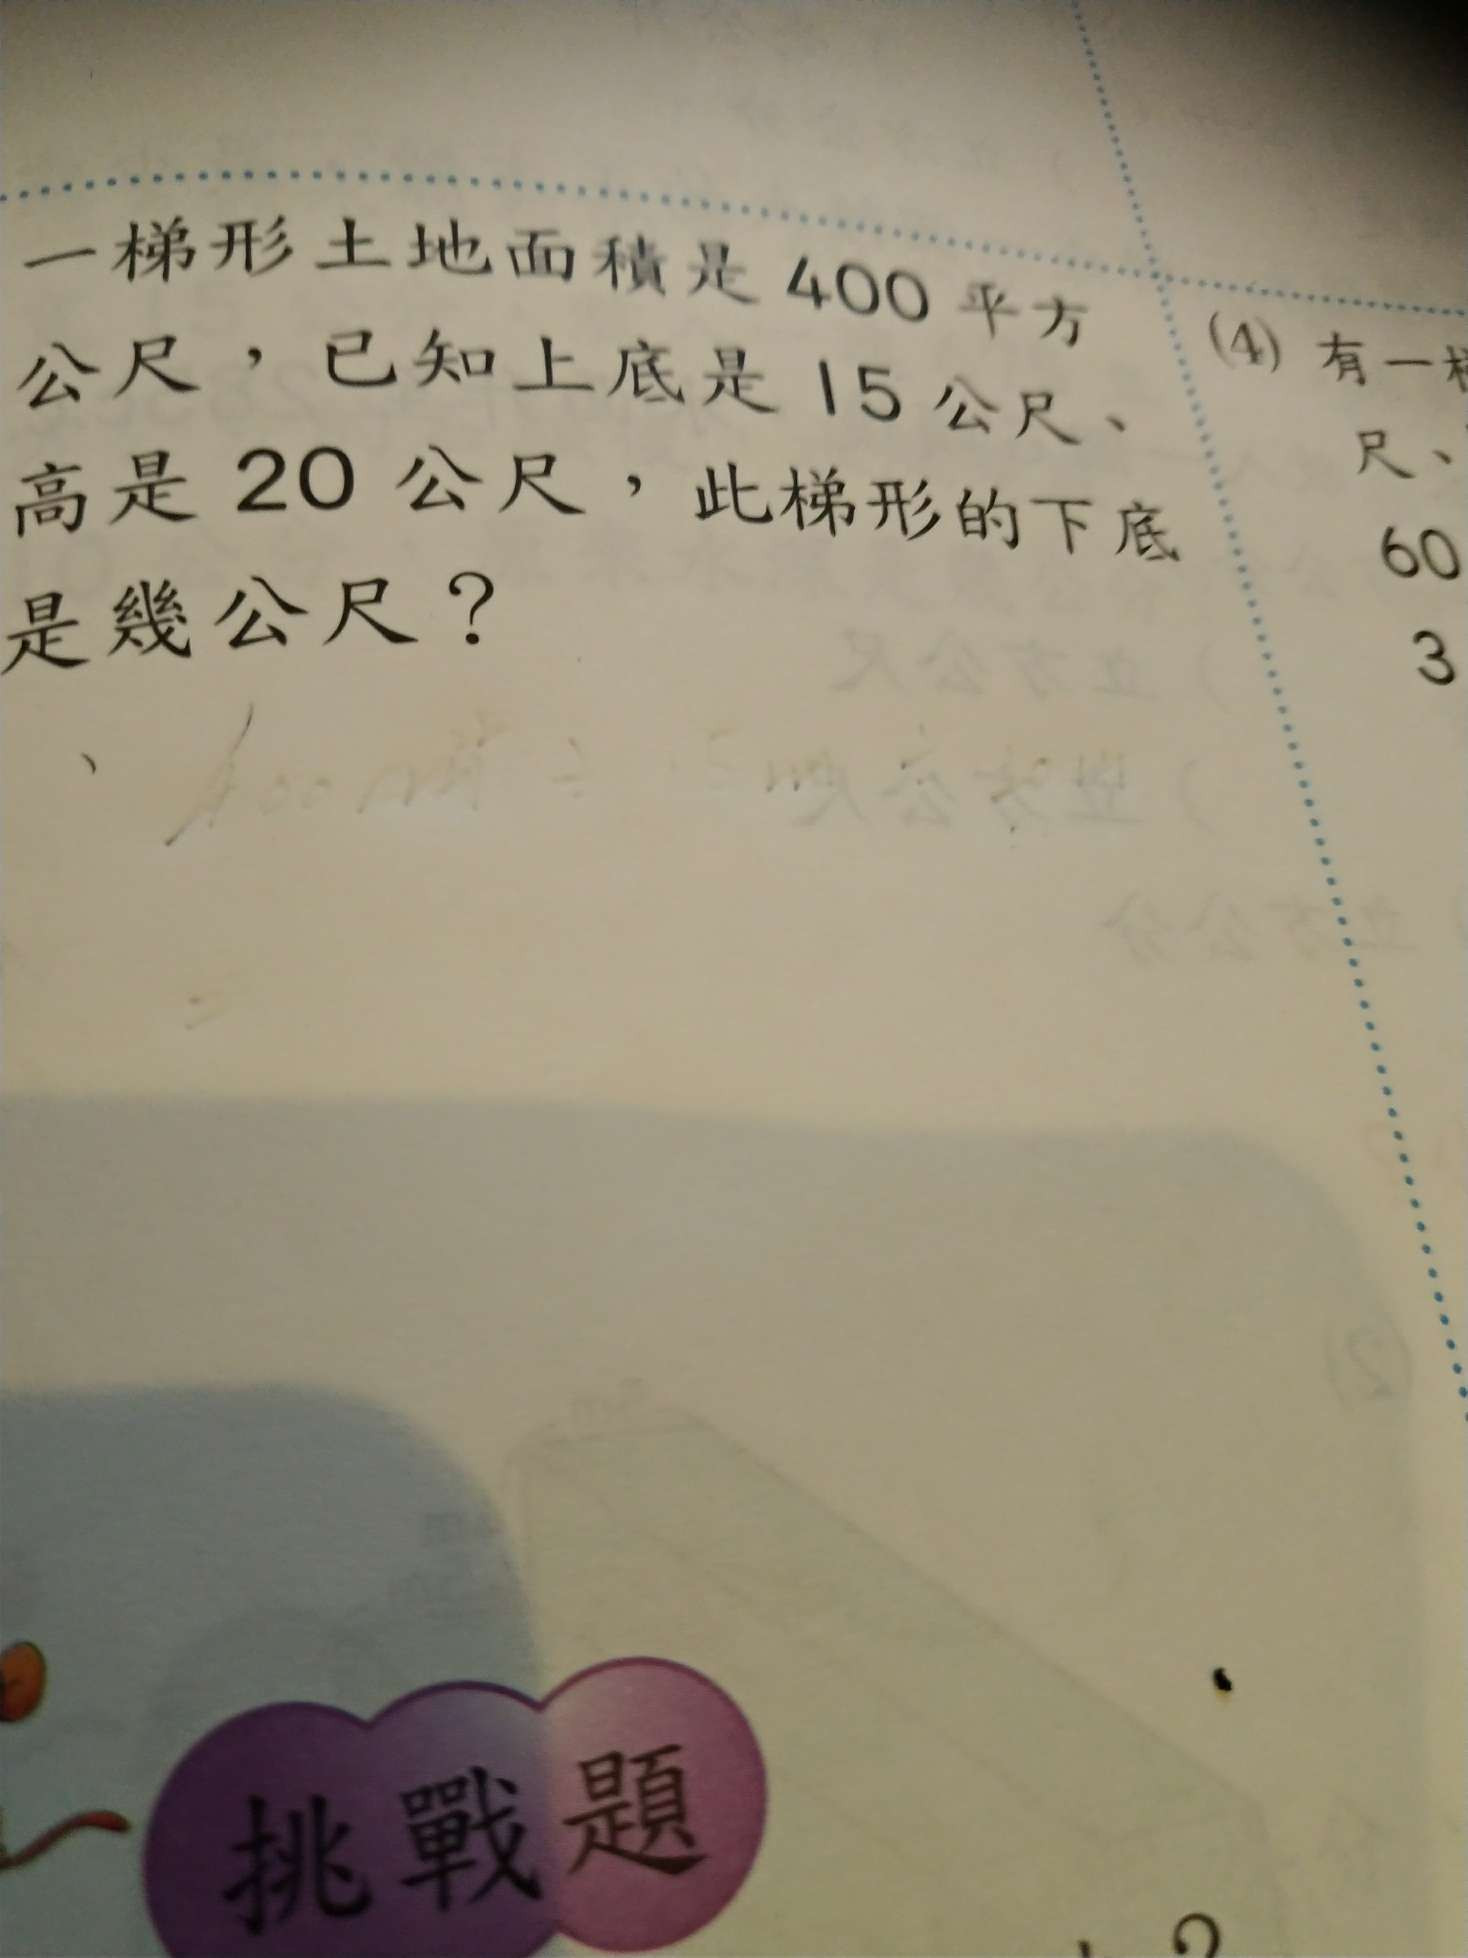 一梯形土地面積是 400 平方
公尺，已知上底是 15 公尺、
高是 20 公尺，此梯形的下底
是幾公尺？
(4) 有一
尺、
60
3
挑戰題
?